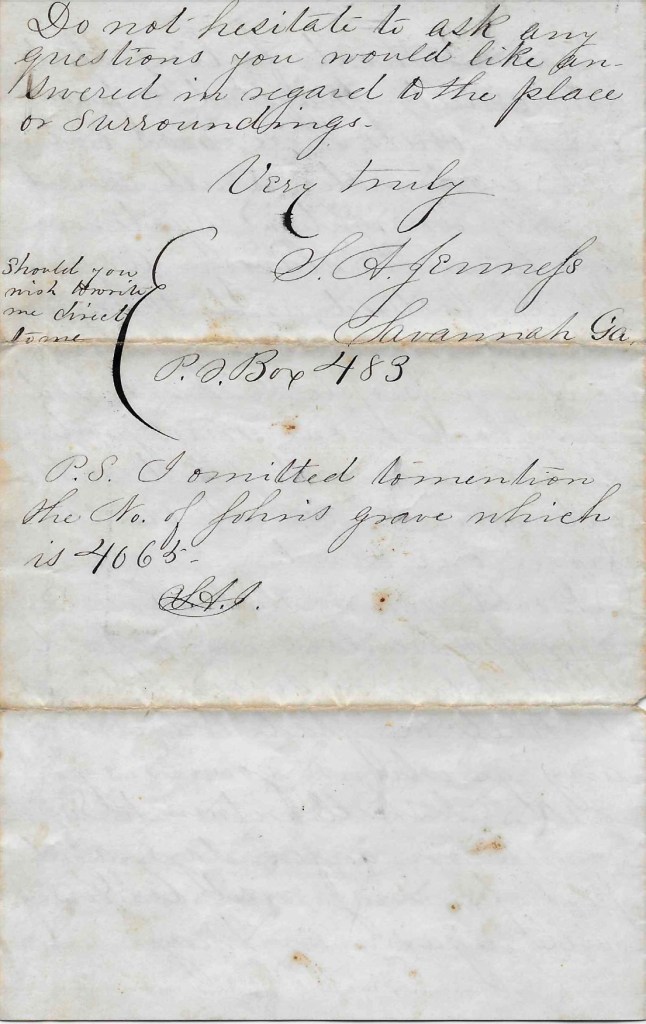 Do not hesitate to ask any
questions you would like an-
swered in regard to the place
or surroundings.
Very truly
S. A. Jenness
Savannah Ga.
Should you
wish to write
me direct
to me
P. O. Box 483
P.S. I omitted to mention
the No. of John's grave which
is 4065.
S.A.J.